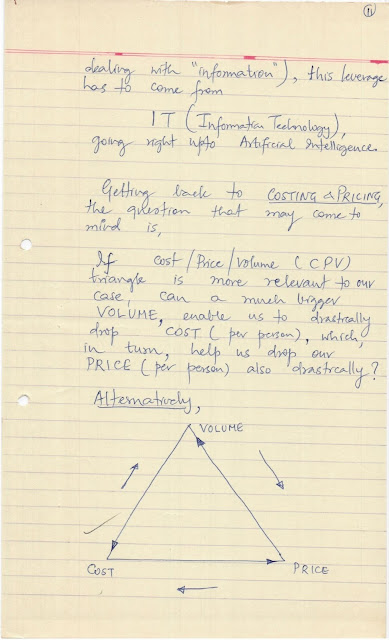 11
dealing with "information"), this leverage
has to come from
IT (Information Technology),
going right upto Artificial Intelligence.
Getting back to COSTING & PRICING,
the question that may come to
mind is,
If cost/Price/volume (CPV)
triangle is more relevant to our
case, can a much bigger
VOLUME, enable us to drastically
drop COST (per person), which,
in turn, help us drop our
PRICE (per person) also drastically?
Alternatively,
VOLUME
COST PRICE